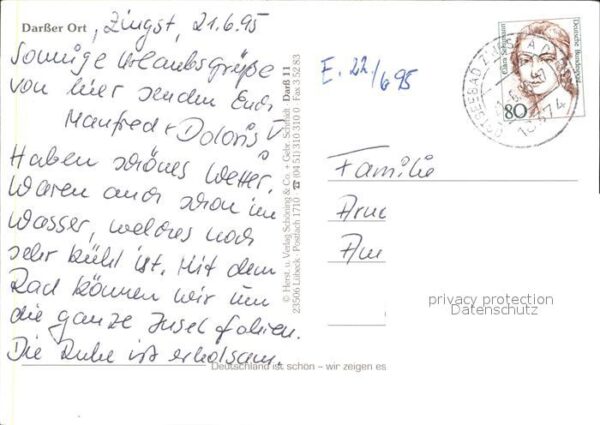 Darßer Ort
, Zingst, 21.6.95
Sonnige Urlaubsgrüße
von hier senden Euch
Manfred + Doloris
Haben schönes Wetter.
Waren auch schon im
Wasser, welches noch
sehr kühl ist. Mit dem
Rad können wir um
die ganze Insel fahren.
Die Ruhe ist erholsam.
© Herst. u. Verlag Schöning & Co. + Gebr. Schmidt Darß 11
23506 Lübeck · Postfach 1710 ☎ (04 51) 310 310 0 Fax 3 52 83
E. 22/6 95
Deutsche Bundespost
80
OSTSEEBAD ZINGST
18374
Familie
privacy protection
Datenschutz
Deutschland ist schön – wir zeigen es